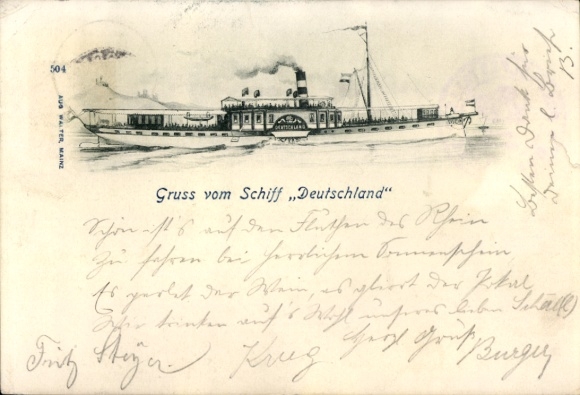 504
AUG WALTER, MAINZ
DEUTSCHLAND
Gruss vom Schiff „Deutschland"
Schön ist's auf den Fluthen des Rhein
Zu fahren bei herrlichem Sonnenschein
Es perlet der Wein, es der Pokal
Wir trinken auf's Wohl unseres lieben
Herzl Gruß
Fritz Krieg Burger
Besten Dank für